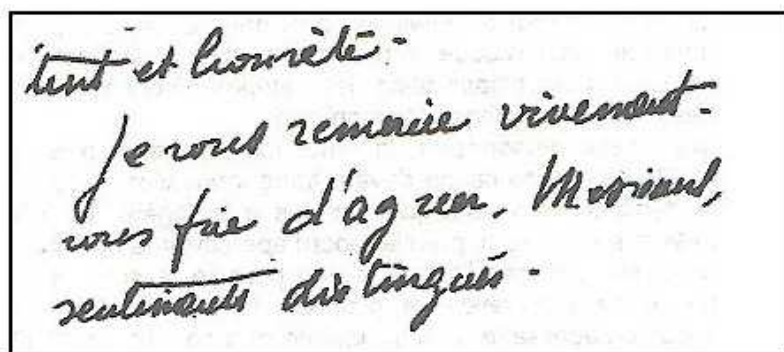 et honnête.
Je vous remercie vivement.
vous prie d'agréer, Messieurs,
sentiments distingués.